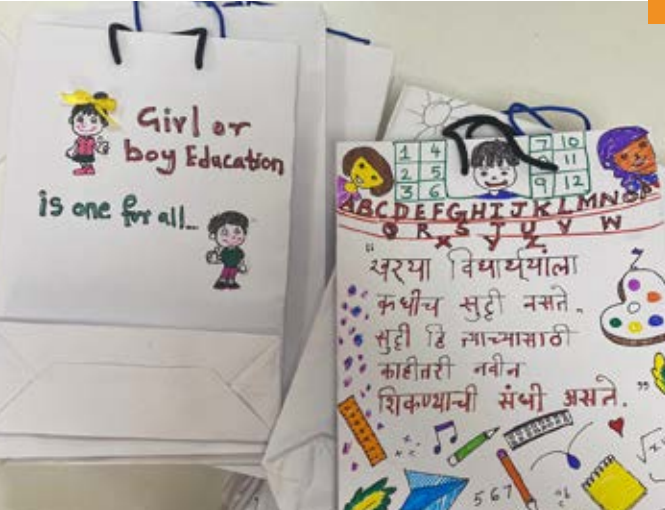 Girl or
boy Education
is one for all...
1 4
2 5
3 6
7 10
11
9 12
ABCDEFGHIJKLMNOP
Q R S T U V W
X Y Z
"खऱ्या विद्यार्थ्यांला
कधीच सुट्टी नसते.
सुट्टी हि त्याच्यासाठी
काहीतरी नवीन
शिकण्याची संधी असते."
5 6 7